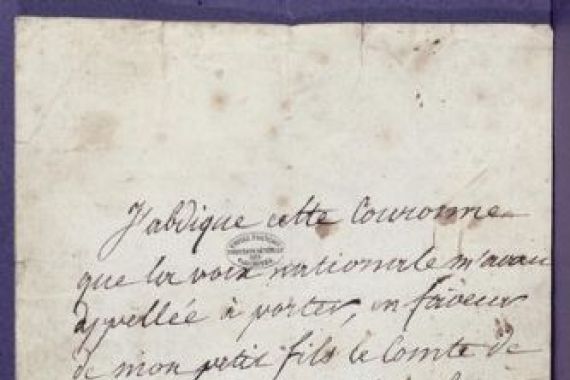 J'abdique cette Couronne
que la voix nationale m'avait
appellée à porter, en faveur
de mon petit fils le Comte de